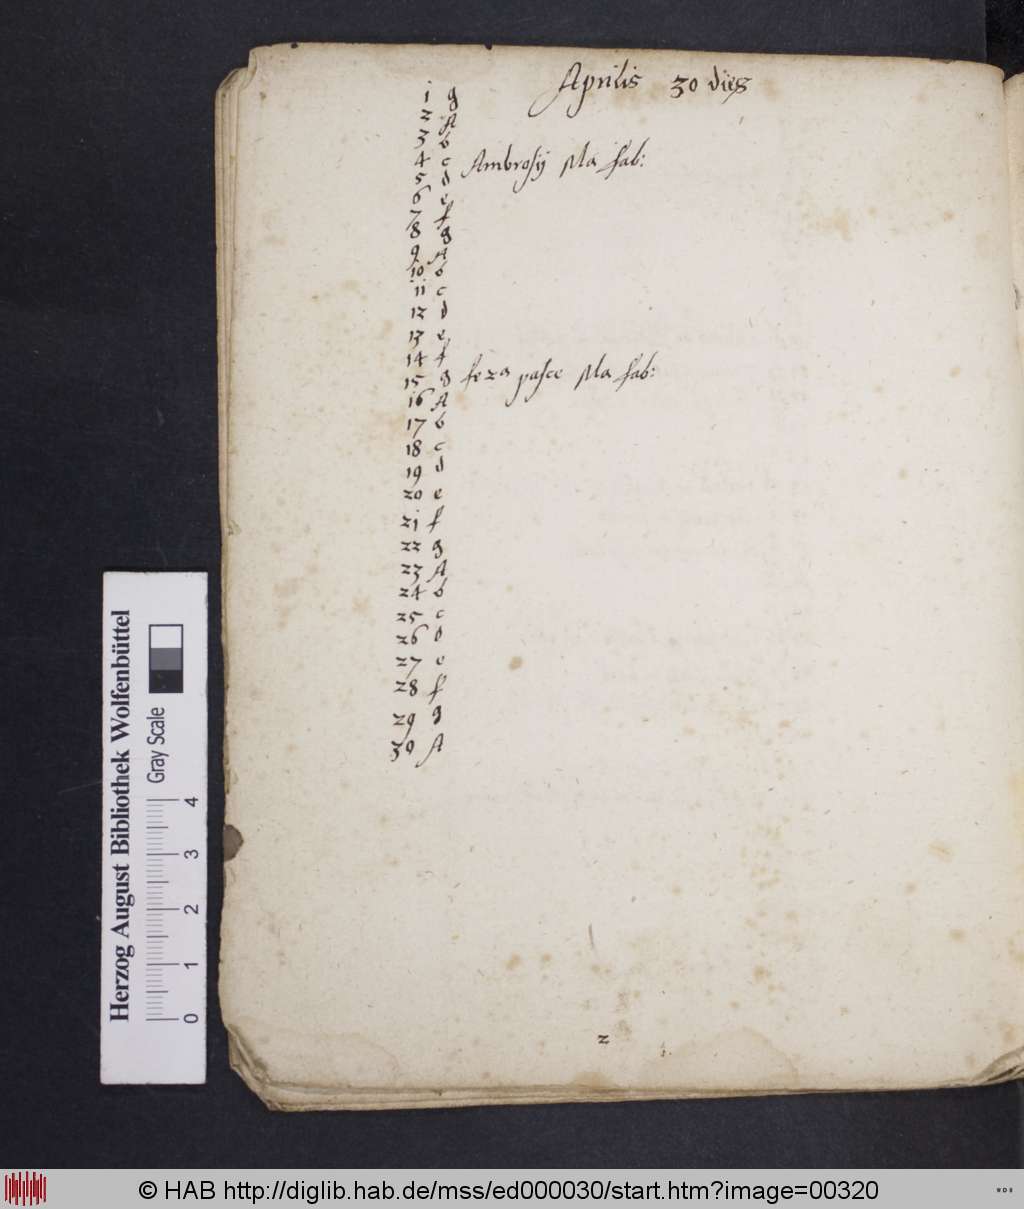 Aprilis 30 dies
1 g
2 A
3 b
4 c Ambrosij pla fab:
5 d
6 e
7 f
8 g
9 A
10 b
11 c
12 d
13 e
14 f
15 g pasce pla fab:
16 A
17 b
18 c
19 d
20 e
21 f
22 g
23 A
24 b
25 c
26 d
27 e
28 f
29 g
30 A
2
Herzog August Bibliothek Wolfenbüttel
Gray Scale
0 1 2 3 4
© HAB http://diglib.hab.de/mss/ed000030/start.htm?image=00320